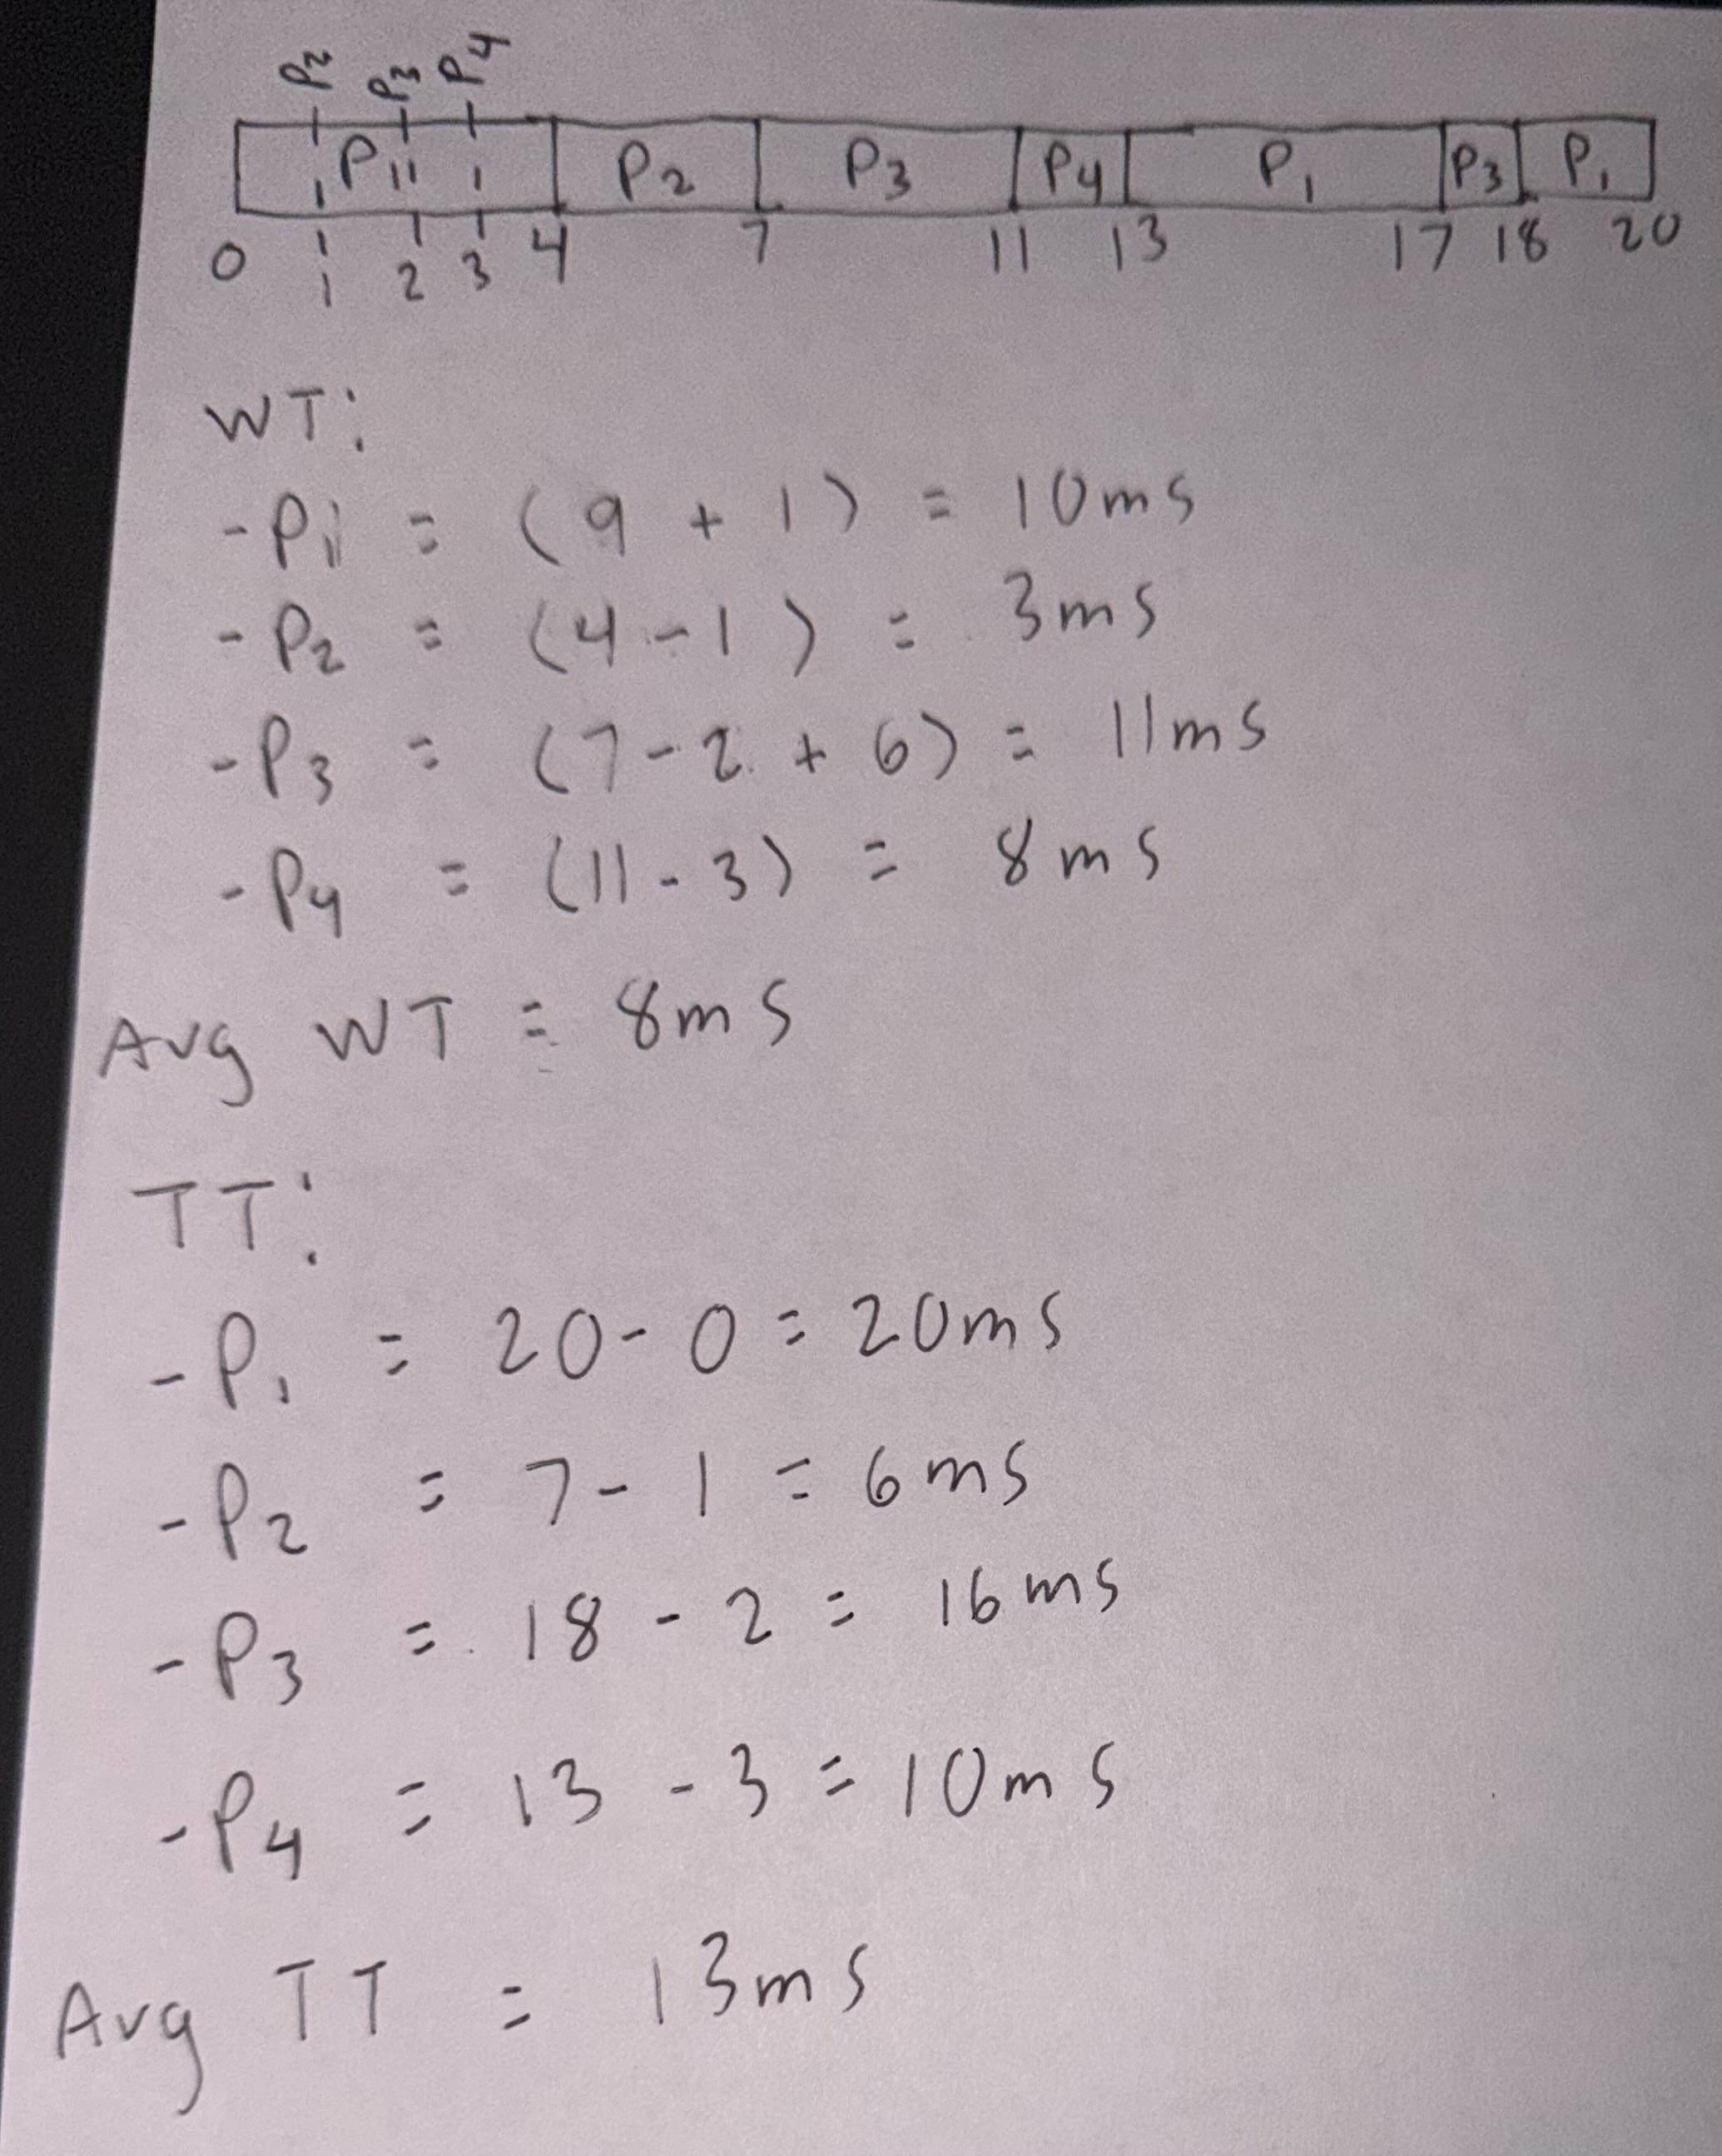 P2 P3 P4
P1 P2 P3 P4 P1 P3 P1
0 1 2 3 4 7 11 13 17 18 20
WT:
-P1 = (9 + 1) = 10ms
-P2 = (4-1) = 3ms
-P3 = (7-2 + 6) = 11ms
-P4 = (11-3) = 8ms
Avg WT = 8ms
TT:
-P1 = 20-0 = 20ms
-P2 = 7-1 = 6ms
-P3 = 18-2 = 16ms
-P4 = 13-3 = 10ms
Avg TT = 13ms